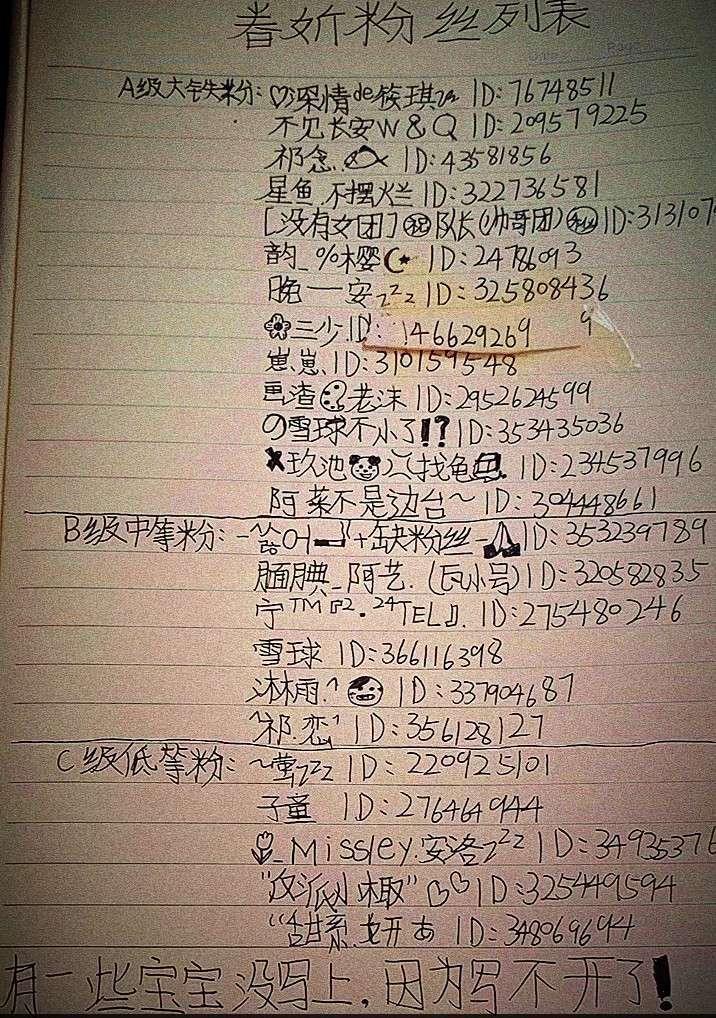 眷妡粉丝列表
Page
A级大铁粉:♡深情de筱琪 ID:76748511
不见长安W&Q ID:209579225
祁念. ID:43581856
星鱼.不摆烂 ID:322736581
[没有女团]㊗队长(帅哥团)㊙ID:31310
韵_%樱☪ ID:24786093
晚一安zzz ID:325808436
三少.ID: 146629269 9
崽崽.ID:310159548
画渣🎨老沫 ID:2952624599
雪球不小了!? ID:353435036
玖池 找龟 ID:234537996
阿菜不是边台~ ID:304448661
B级中等粉: +缺粉丝- ID:353239789
腼腆_阿艺.(瓦小号) ID:320582835
宁™『2.24TEL』. ID:275480246
雪球 ID:366116398
淋雨.^ ID:337904687
^祁.恋^ ID:356128127
C级低等粉:~莺zzz ID:220925101
子童 ID:276464944
_Missley.安洛zzz ID:34935376
"反派小趣"♡♡ ID:325449594
"甜系.妍あ ID:348069694
有一些宝宝没写上,因为写不开了!